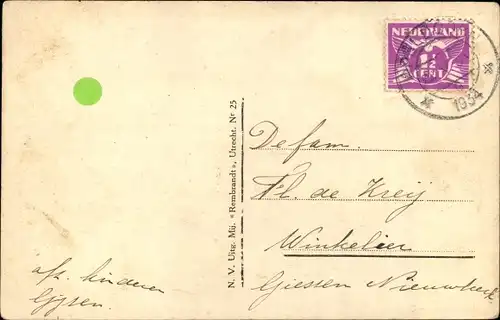 NEDERLAND
1½
CENT
1934
N. V. Uitg. Mij. «Rembrandt», Utrecht. Nº 25
De fam.
Pl. de Kreij
Winkelier
Giessen Nieuwkerk
afz. kinderen
Gijsen.